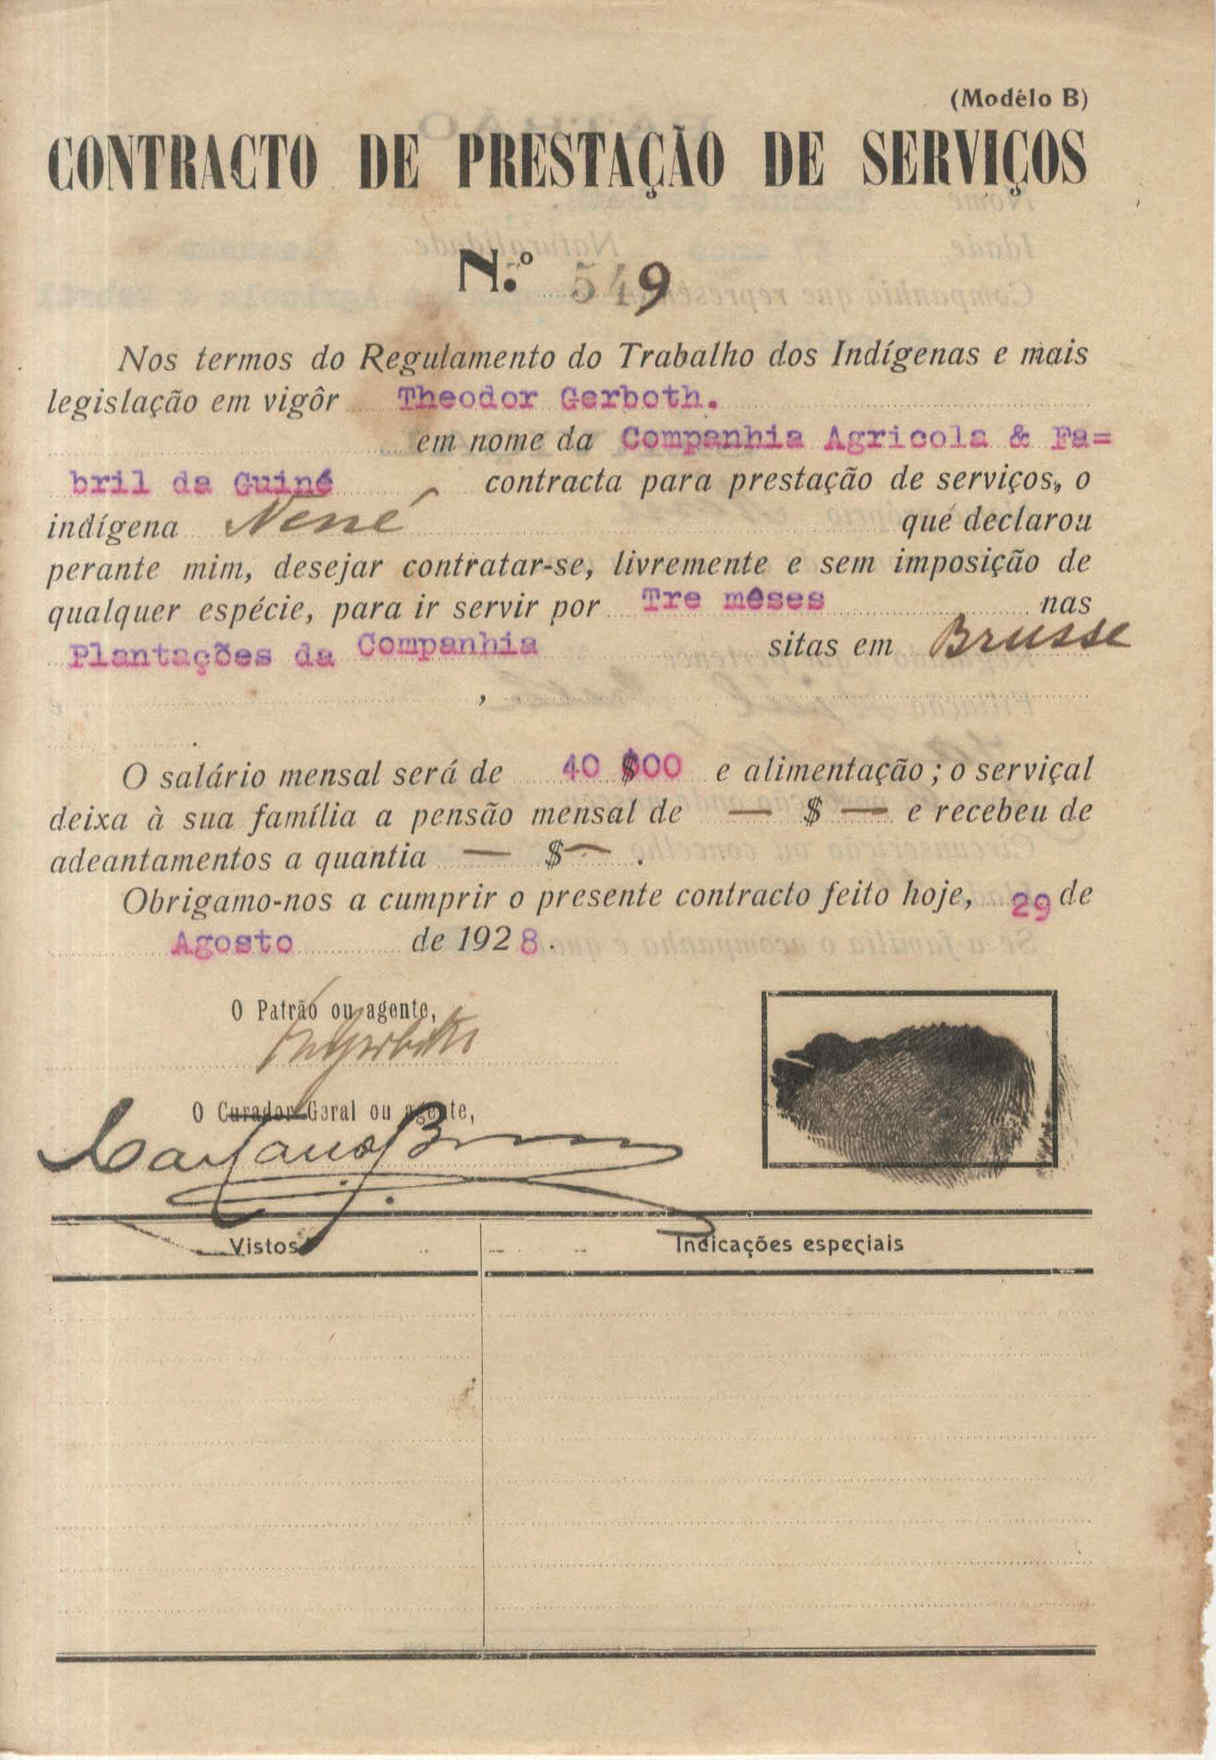 (Modêlo B)
CONTRACTO DE PRESTAÇÃO DE SERVIÇOS
N.º 549
Nos termos do Regulamento do Trabalho dos Indígenas e mais
legislação em vigôr Theodor Gerboth.
em nome da Companhia Agricola & Fa=
bril da Guiné contracta para prestação de serviços, o
indígena Nené que declarou
perante mim, desejar contratar-se, livremente e sem imposição de
qualquer espécie, para ir servir por Tre mêses nas
Plantações da Companhia sitas em Brusse
,
.
O salário mensal será de 40 $00 e alimentação; o serviçal
deixa à sua família a pensão mensal de — $ — e recebeu de
adeantamentos a quantia — $ — .
Obrigamo-nos a cumprir o presente contracto feito hoje, 29 de
Agosto de 1928.
O Patrão ou agente,
O Curador Geral ou agente,
Vistos Indicações especiais